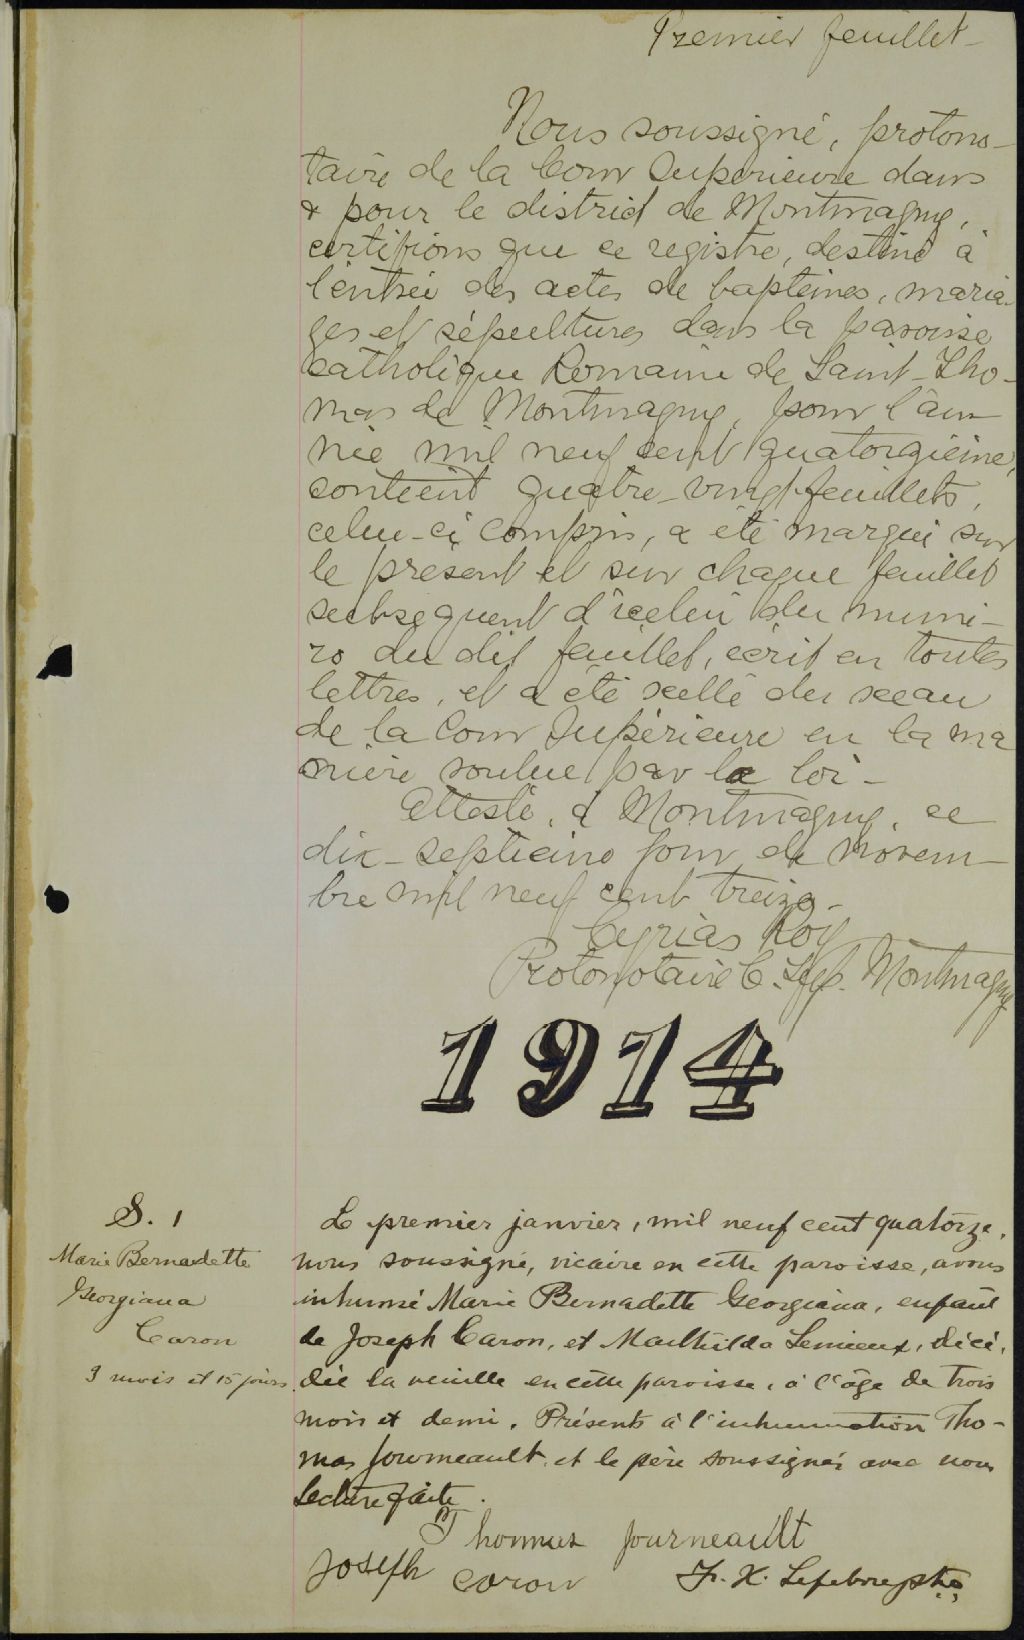 Premier feuillet -
Nous soussigné, protono-
taire de la Cour Supérieure dans
& pour le district de Montmagny,
certifions que ce registre, destiné à
l'entrée des actes de baptêmes, maria-
ges et sépultures dans la paroisse
Catholique Romaine de Saint-Tho-
mas de Montmagny, pour l'an-
née mil neuf cent quatorzième,
contient quatre-vingt feuillets,
celui-ci compris, a été marqué sur
le présent et sur chaque feuillet
subséquent d'icelui du numé-
ro du dit feuillet, écrit en toutes
lettres, et a été scellé du sceau
de la Cour Supérieure en la ma
nière voulue par la loi -
Attesté, à Montmagny, ce
dix-septième jour de novem-
bre mil neuf cent treize -
Cyrias Roy
Protonotaire C. Sup. Montmagny
1914
S. 1
Marie Bernadette
Georgiana
Caron
3 mois et 15 jours
Le premier janvier, mil neuf cent quatorze,
nous soussigné, vicaire en cette paroisse, avons
inhumé Marie Bernadette Georgiana, enfant
de Joseph Caron, et Mathilda Lemieux, décé-
dée la veille en cette paroisse, à l'âge de trois
mois et demi. Présents à l'inhumation Tho-
mas Journeault, et le père soussignés avec nous
Lecture faite.
Thommas Journeault
Joseph Caron F. X. Lefebvre ptre